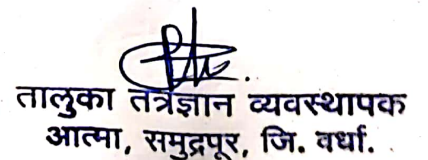 तालुका तंत्रज्ञान व्यवस्थापक
आत्मा, समुद्रपूर, जि. वर्धा.